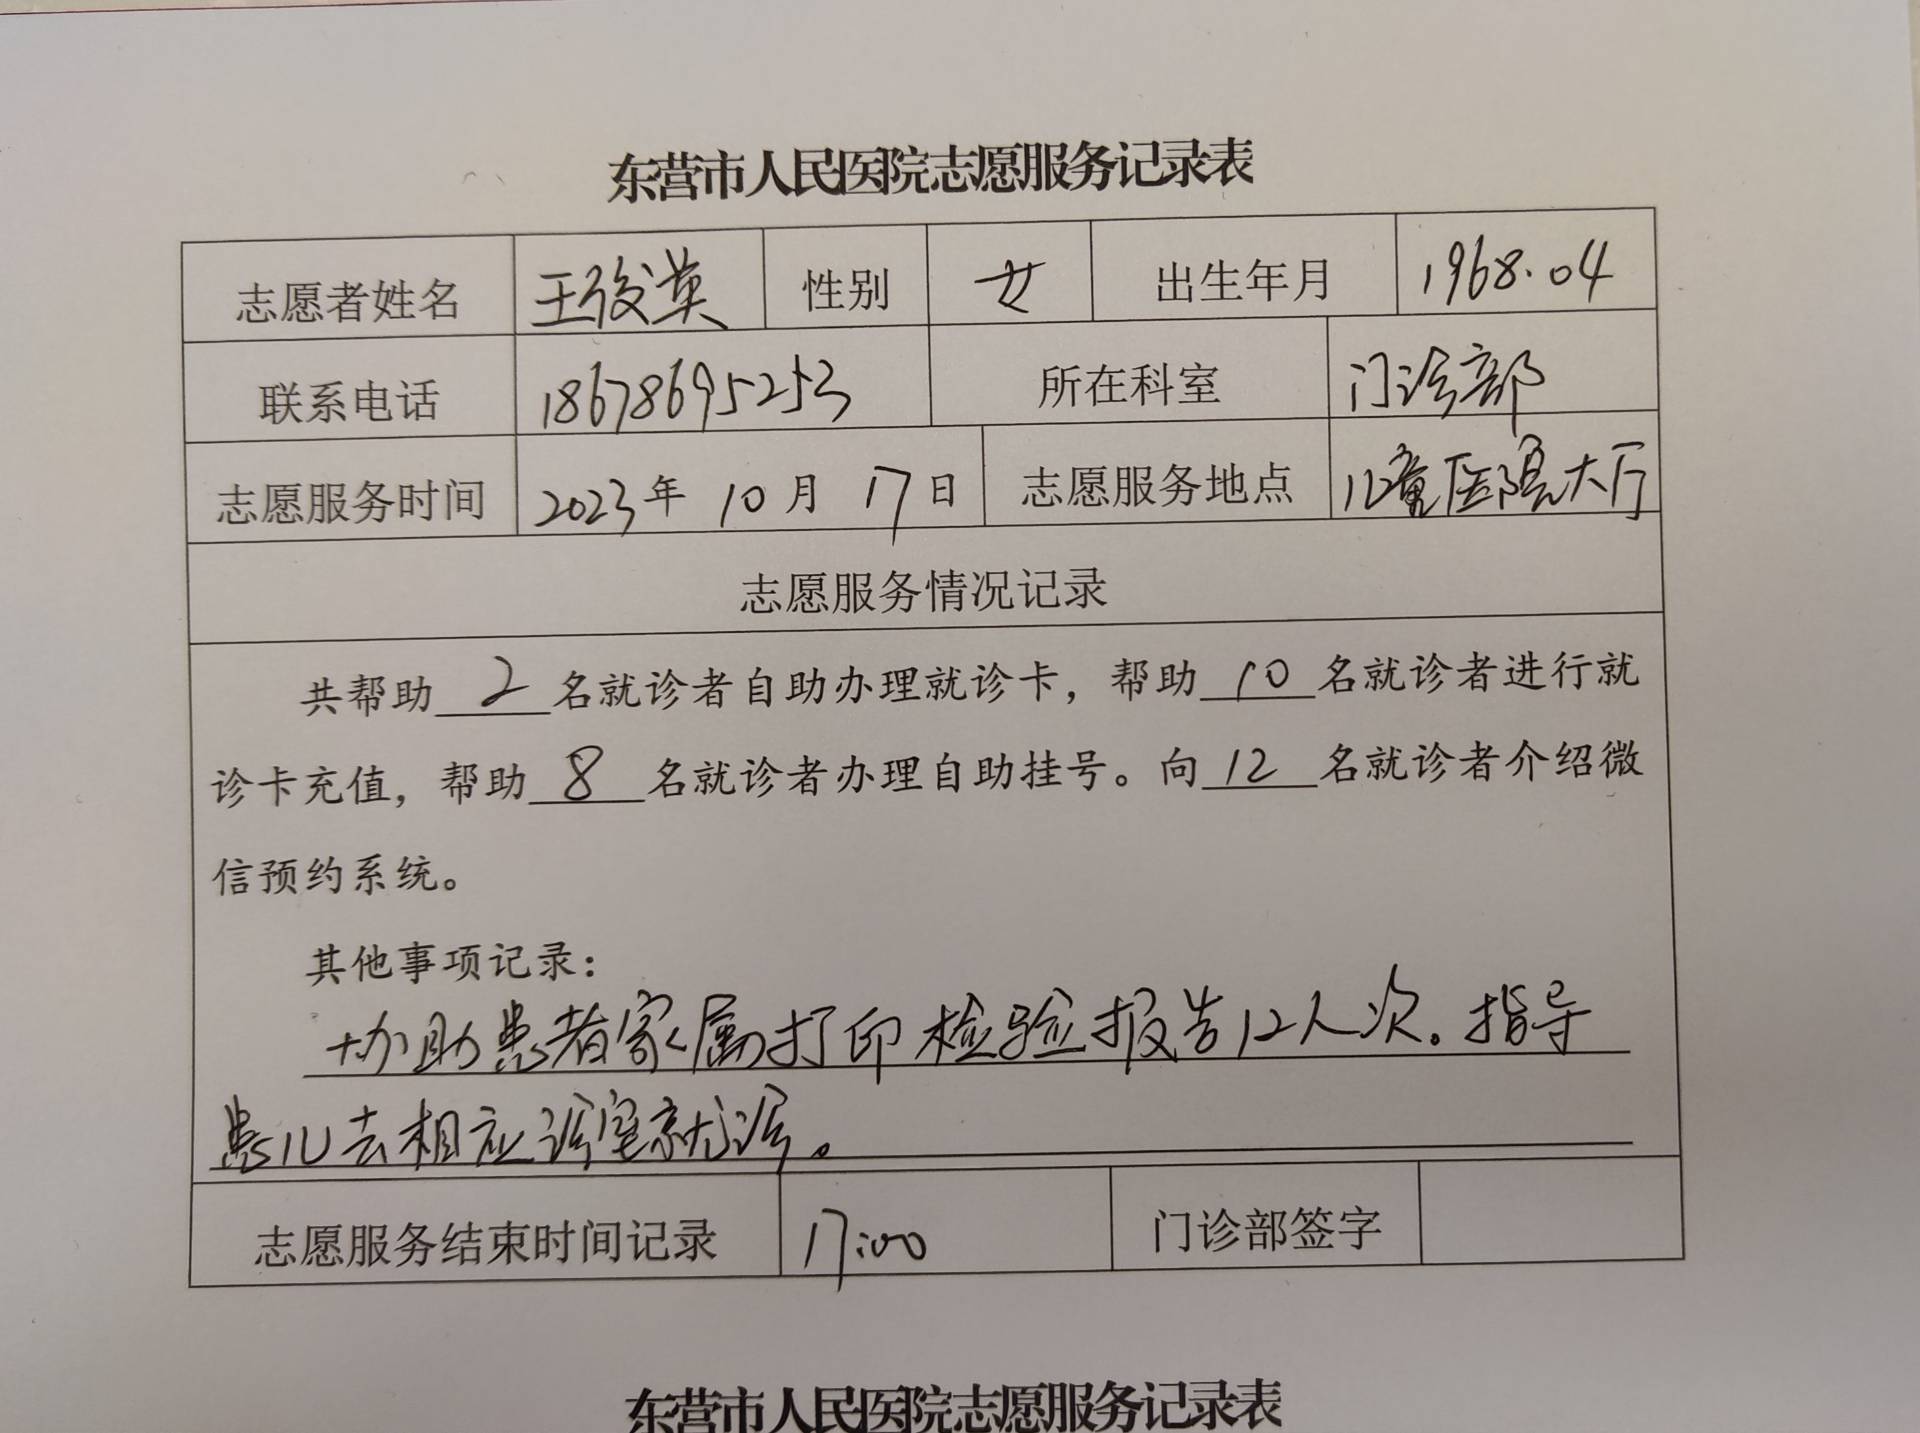 东营市人民医院志愿服务记录表
志愿者姓名 王俊英 性别 女 出生年月 1968.04
联系电话 18678695253 所在科室 门诊部
志愿服务时间 2023年 10月 17日 志愿服务地点 儿童医院大厅
志愿服务情况记录
共帮助 2 名就诊者自助办理就诊卡，帮助 10 名就诊者进行就
诊卡充值，帮助 8 名就诊者办理自助挂号。向 12 名就诊者介绍微
信预约系统。
其他事项记录：
协助患者家属打印检验报告12人次。指导
患儿去相应诊室就诊。
志愿服务结束时间记录 17:00 门诊部签字
东营市人民医院志愿服务记录表